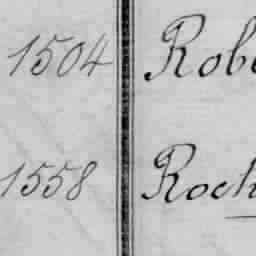 1504 Robe
1558 Roch